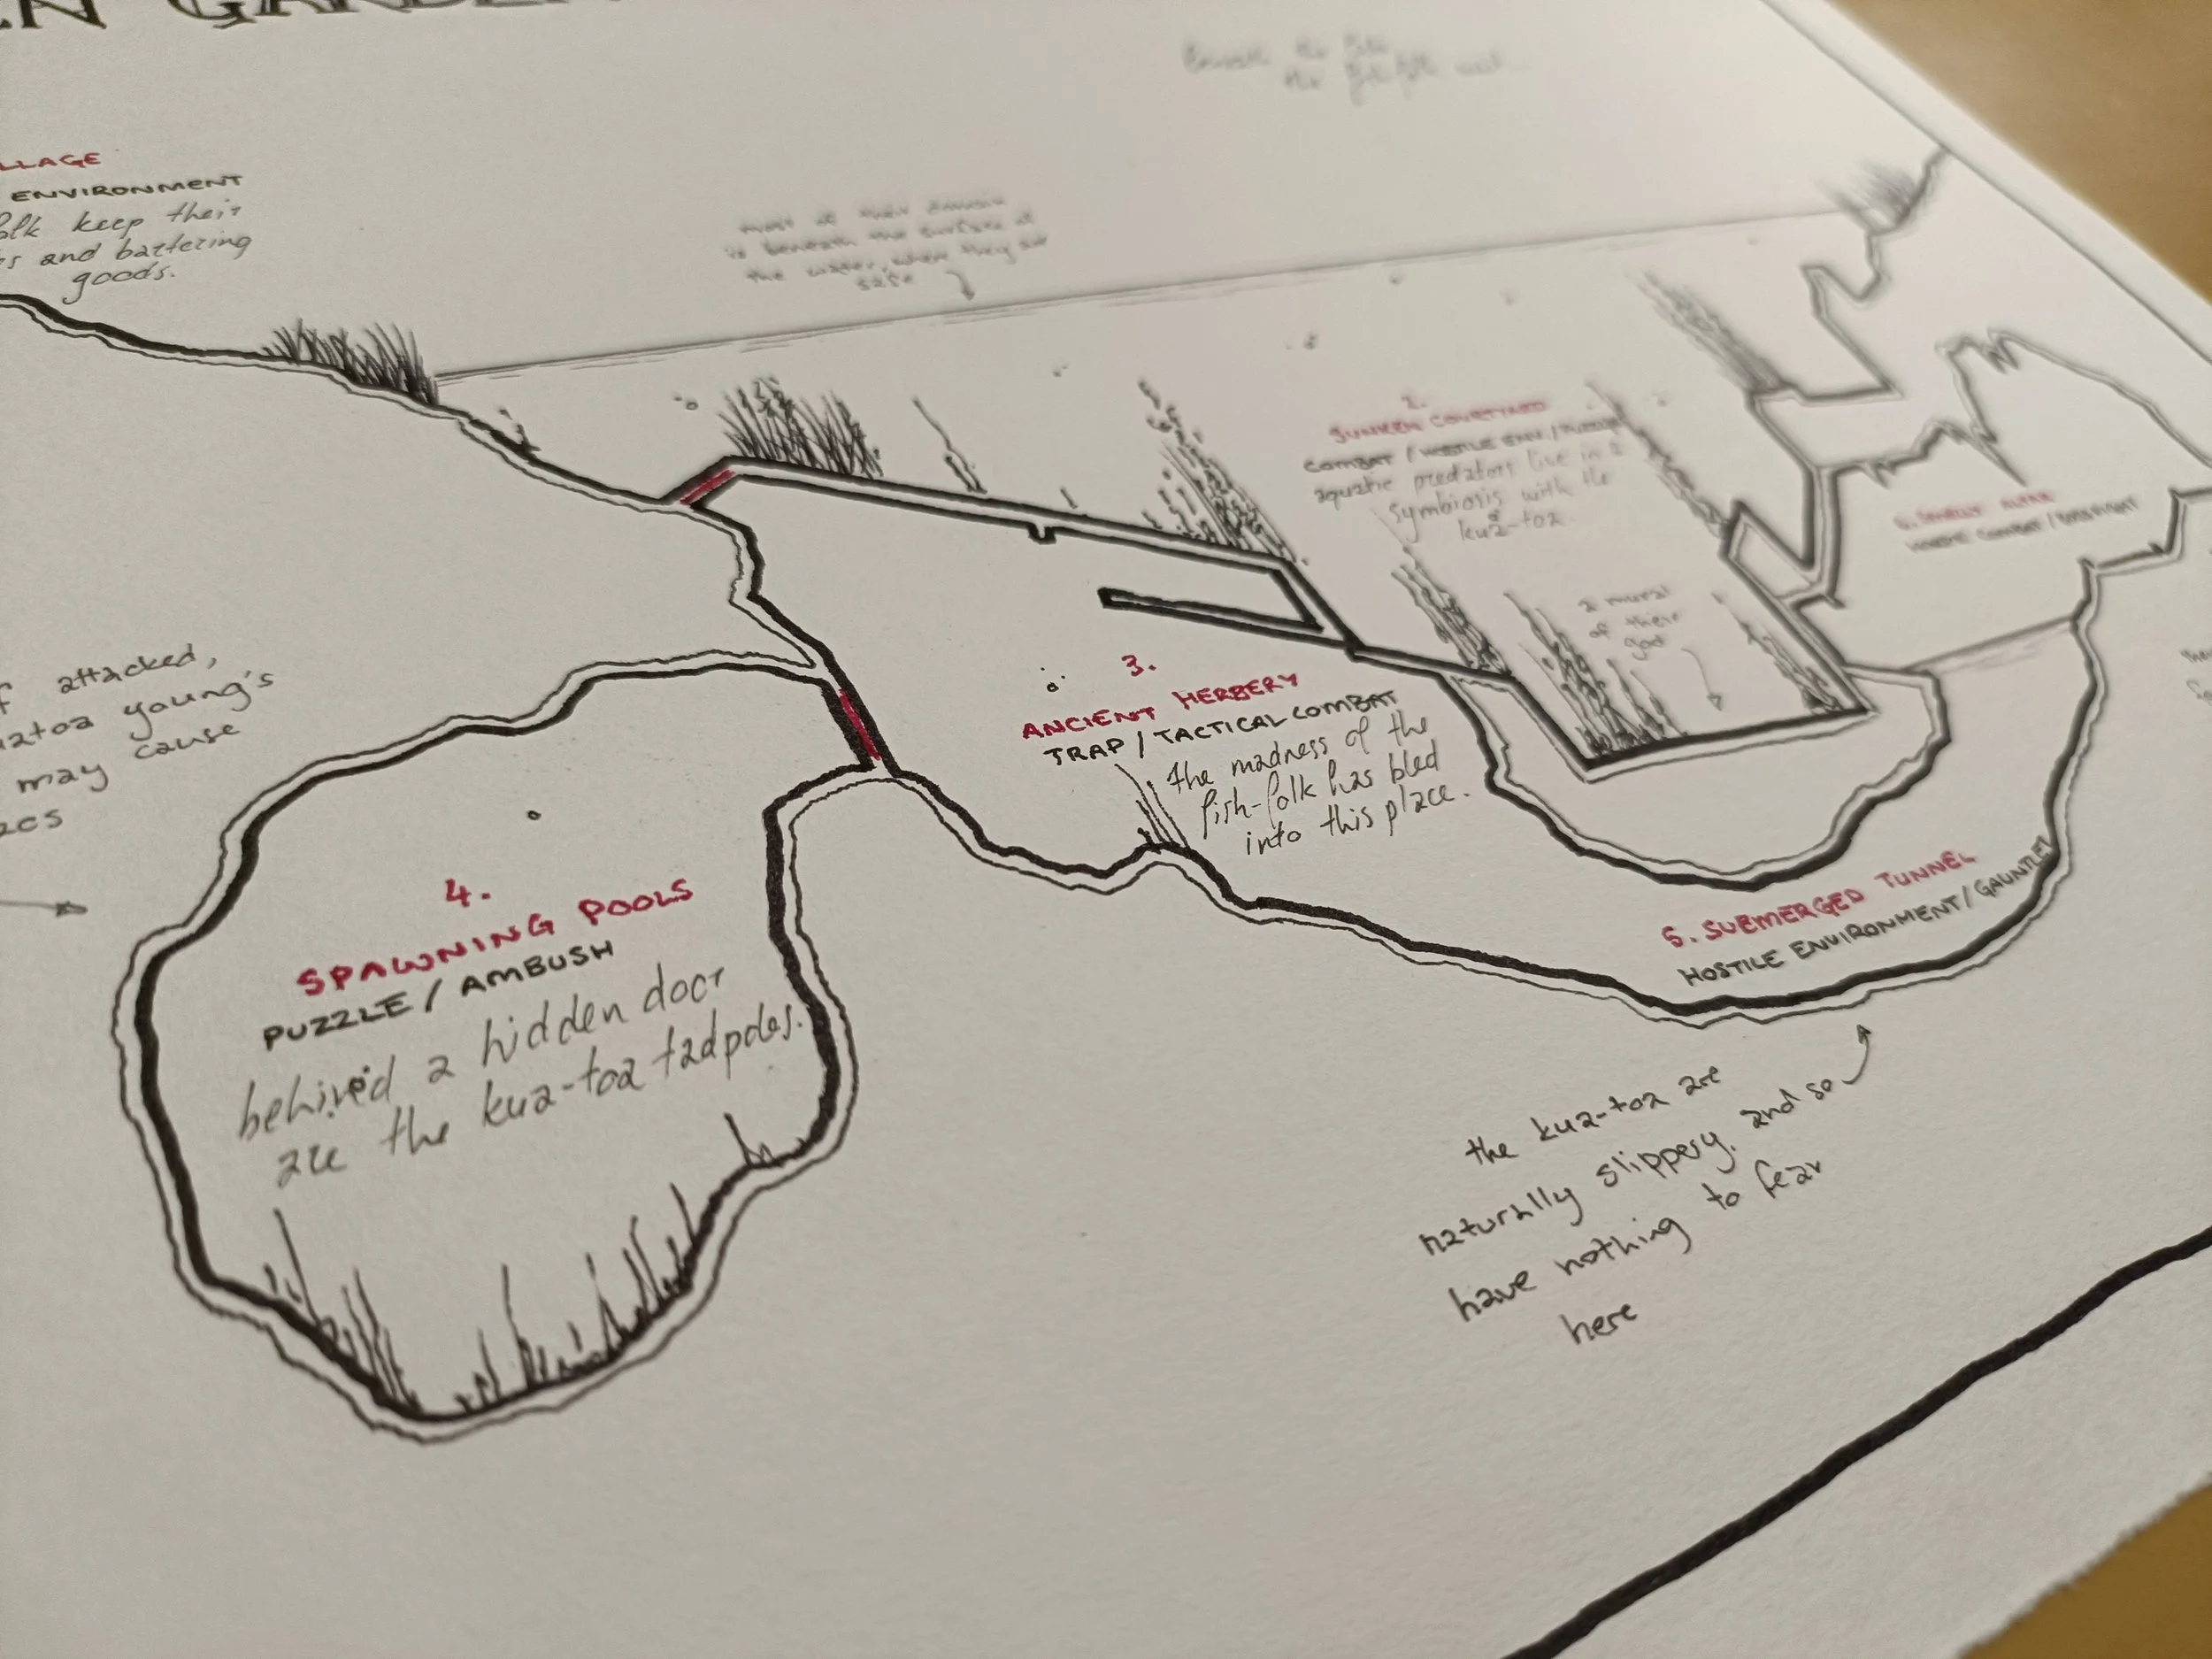 EN GARDE
LLAGE
ENVIRONMENT
folk keep their
s and bartering
goods.
is beneath the surface of
the water, where they are
safe
2.
SUNKEN COURTYARD
COMBAT / HOSTILE ENV. /
aquatic predators live in a
symbiosis with the
kua-toa
a mural
of their
god
3.
ANCIENT HERBERY
TRAP / TACTICAL COMBAT
the madness of the
fish-folk has bled
into this place.
f attacked,
uatoa young's
may cause
4.
SPAWNING POOLS
PUZZLE / AMBUSH
behined a hidden door
are the kua-toa tadpoles.
5. SUBMERGED TUNNEL
HOSTILE ENVIRONMENT / GAUNTLET
the kua-toa are
naturally slippery, and so
have nothing to fear
here